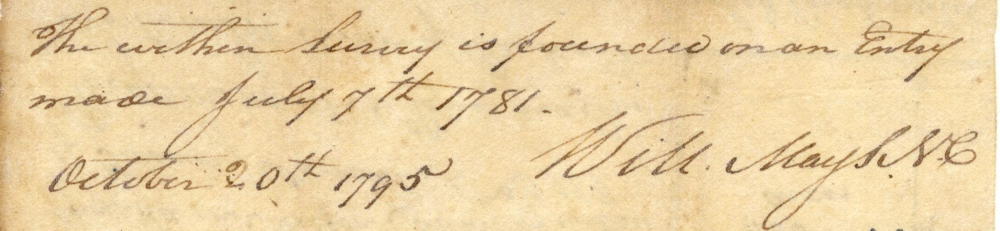 The within Survey is founded on an Entry
made July 7th 1781.
October 20th 1795
Will. May S. N C